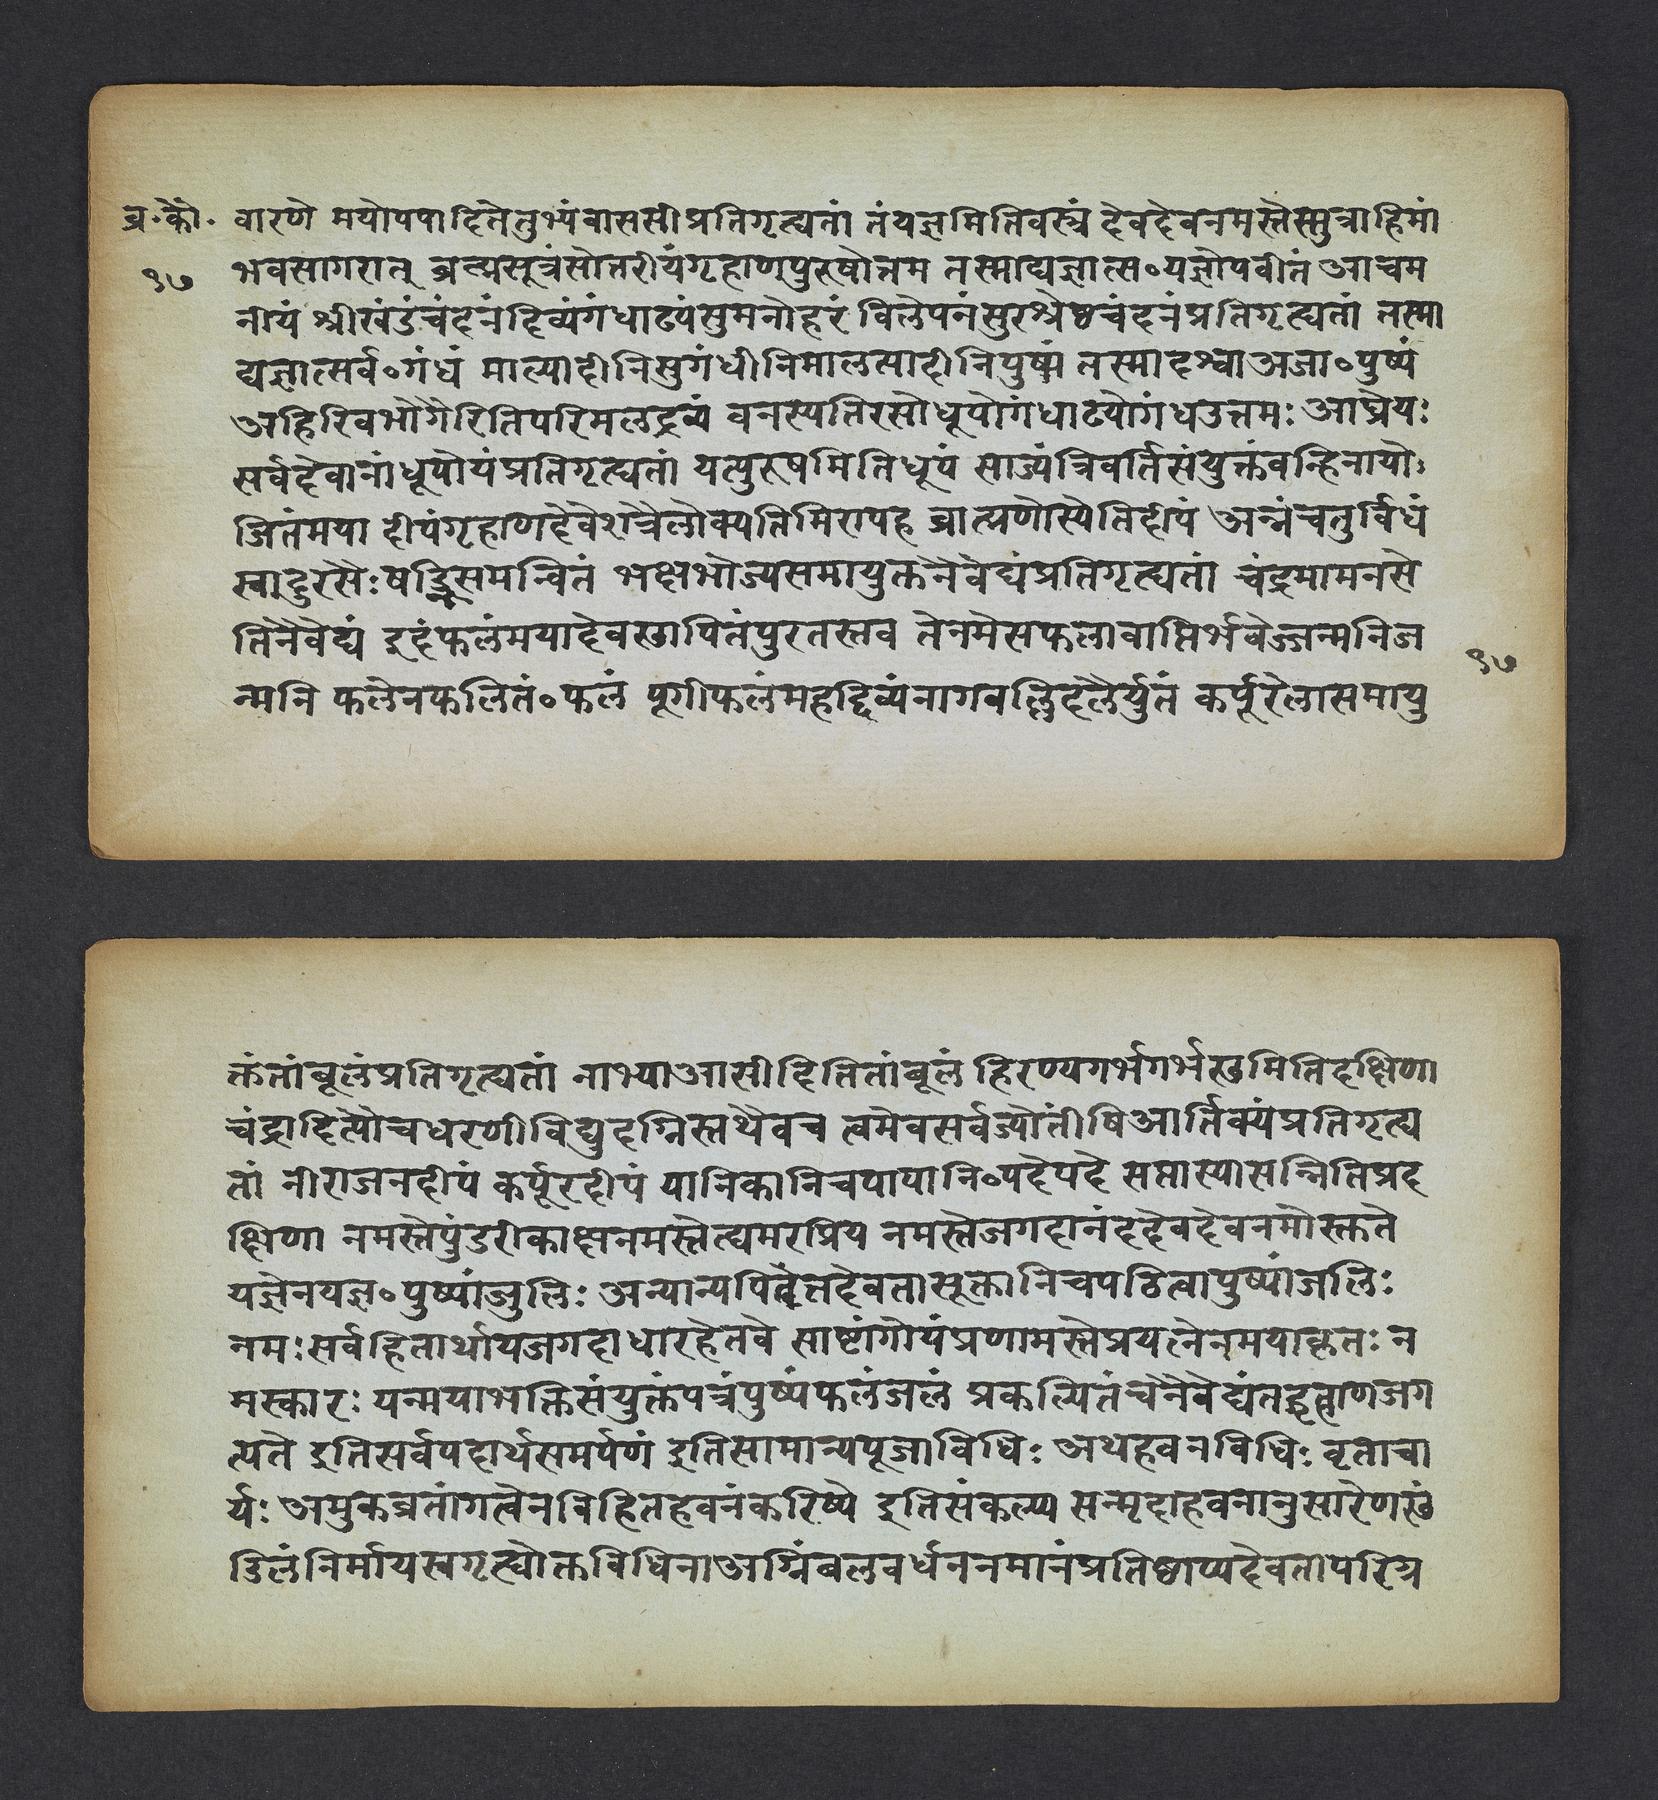 व्र.कौ. वारणे मयोपपादितेतुभ्यंवाससीप्रतिगृह्यतां तंयज्ञमितिवस्त्रं देवदेवनमस्तेस्तुत्राहिमां
१७ भवसागरात् ब्रह्मसूत्रंसोत्तरीयंगृहाणपुरुषोत्तम तस्माद्यज्ञात्स०यज्ञोपवीतं आचम
नीयं श्रीखंडंचंदनंदिव्यंगंधाढ्यंसुमनोहरं विलेपनंसुरश्रेष्ठचंदनंप्रतिगृह्यतां तस्मा
द्यज्ञात्सर्व०गंधं माल्यादीनिसुगंधीनिमालत्यादीनिपुष्पं तस्मादश्वाअजा०पुष्पं
अहिरिवभोगैरितिपरिमलद्रव्यं वनस्पतिरसोधूपोगंधाढ्योगंधउत्तमः आघ्रेयः
सर्वदेवानांधूपोयंप्रतिगृह्यतां यत्पुरुषमितिधूपं साज्यंत्रिवर्तिसंयुक्तंवन्हिनायो
जितंमया दीपंगृहाणदेवेशत्रैलोक्यतिमिरापह ब्राह्मणोस्येतिदीपं अन्नंचतुर्विधं
स्वादुरसैःषड्भिसमन्वितं भक्ष्यभोज्यसमायुक्तनैवेद्यंप्रतिगृह्यतां चंद्रमामनसे
तिनैवेद्यं इदंफलंमयादेवस्थापितंपुरतस्तव तेनमेसफलावाप्तिर्भवेज्जन्मनिज
१७
न्मनि फलेनफलितं०फलं पूगीफलंमहद्दिव्यंनागवल्लिदलैर्युतं कर्पूरेलासमायु
क्तंतांबूलंप्रतिगृह्यतां नाभ्याआसीदितितांबूलं हिरण्यगर्भगर्भस्थमितिदक्षिणा
चंद्रादित्यौचधरणीविद्युदग्निस्तथैवच त्वमेवसर्वज्योतींषिआर्तिक्यंप्रतिगृह्य
तां नीराजनदीपं कर्पूरदीपं यानिकानिचपापानि०पदेपदे सप्तास्यासन्नितिप्रद
क्षिणा नमस्तेपुंडरीकाक्षनमस्तेह्यमरप्रिय नमस्तेजगदानंददेवदेवनमोस्तुते
यज्ञेनयज्ञ०पुष्पांजुलिः अन्यान्यपितद्देवतासूक्तानिचपठित्वापुष्पांजलिः
नमःसर्वहितार्थायजगदाधारहेतवे साष्टांगोयंप्रणामस्तेप्रयत्नेनमयाकृतः न
मस्कारः यन्मयाभक्तिसंयुक्तंपत्रंपुष्पंफलंजलं प्रकल्पितंचनैवेद्यंतद्गृहाणजग
त्पते इतिसर्वपदार्थसमर्पणं इतिसामान्यपूजाविधिः अथहवनविधिः वृताचा
र्यः अमुकव्रतांगत्वेनविहितहवनंकरिष्ये इतिसंकल्प्य सन्मृदाहवनानुसारेणस्थं
डिलंनिर्मायस्वगृह्योक्तविधिनाअग्निंबलवर्धननमानंप्रतिष्ठाप्यदेवतापरिग्र